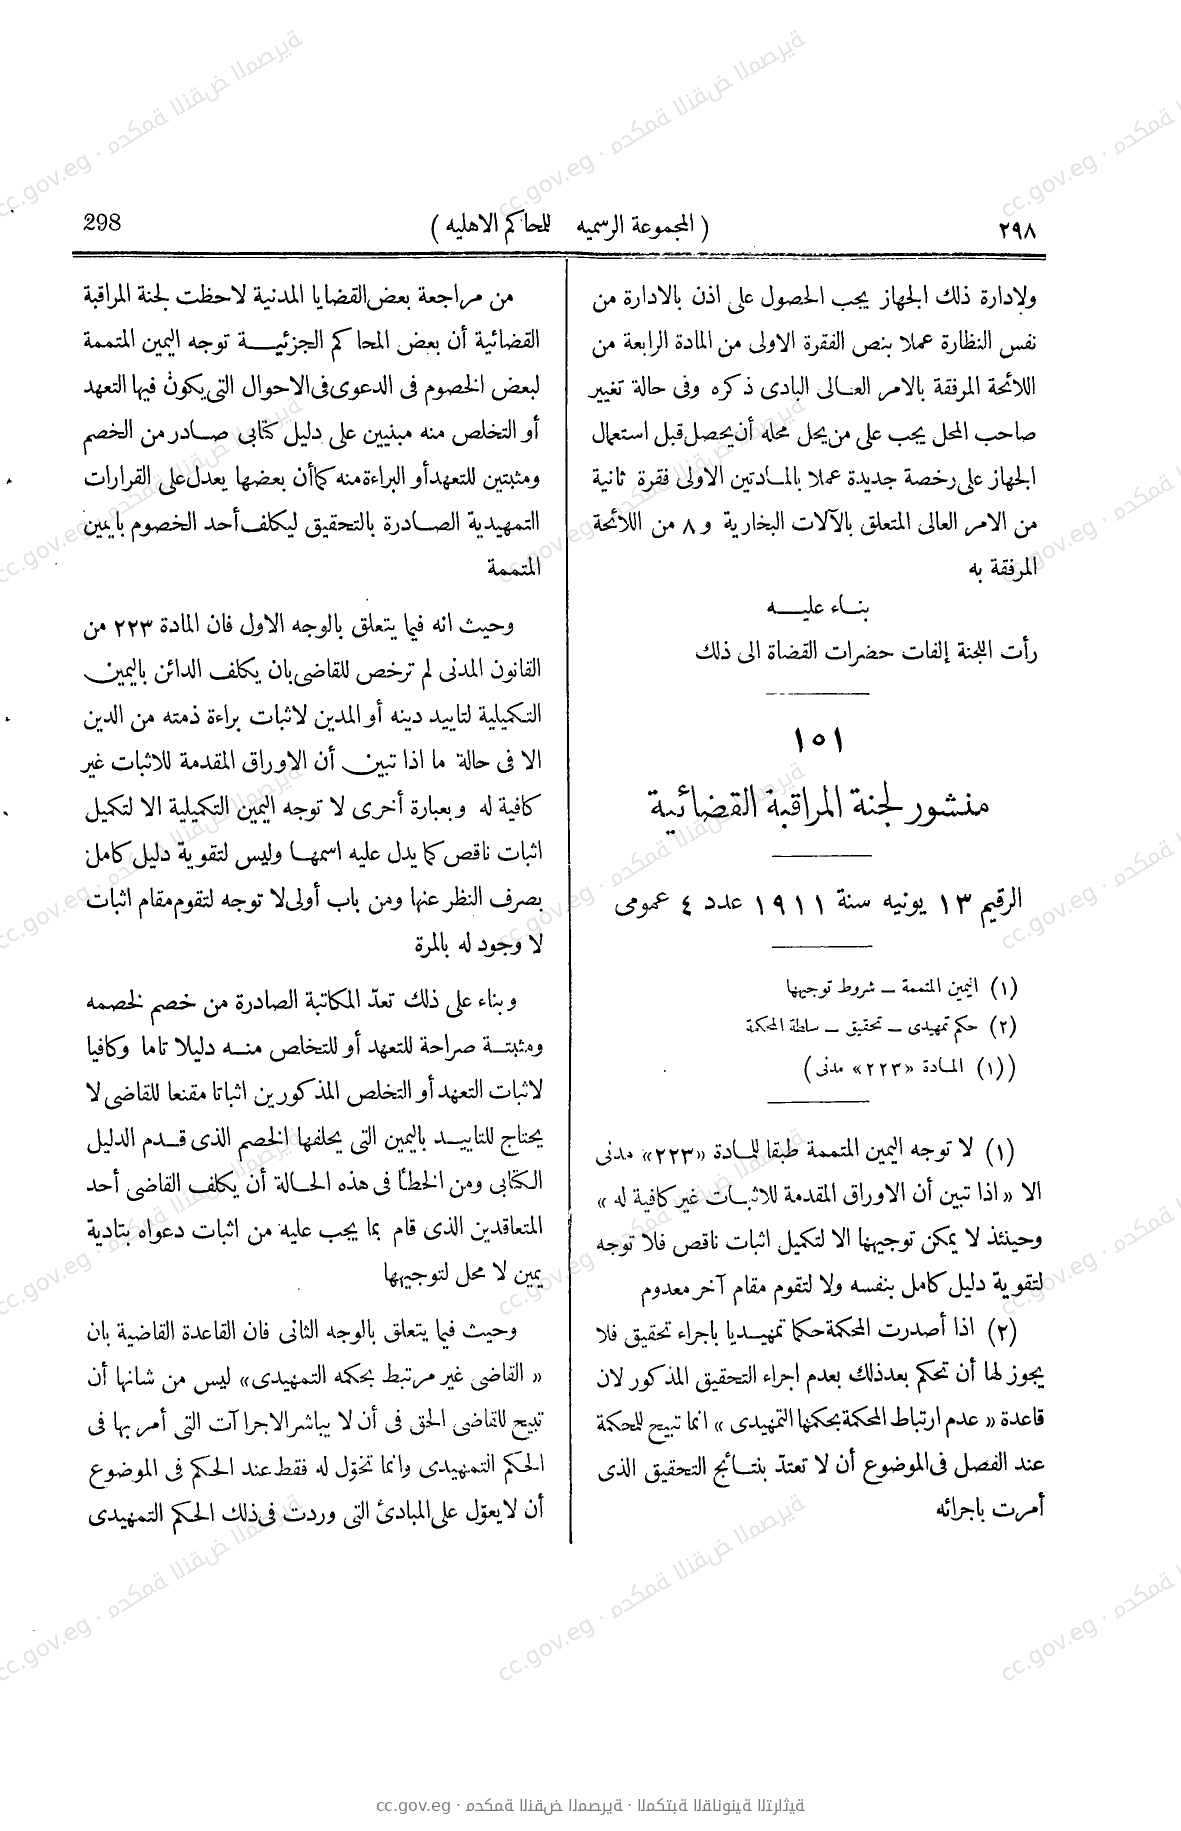 ٢٩٨
( المجموعة الرسميه للمحاكم الاهليه )
298
ولادارة ذلك الجهاز يجب الحصول على اذن بالادارة من
نفس النظارة عملا بنص الفقرة الاولى من المادة الرابعة من
اللائحة المرفقة بالامر العالى البادى ذكره وفى حالة تغيير
صاحب المحل يجب على من يحل محله أن يحصل قبل استعمال
الجهاز على رخصة جديدة عملا بالمادتين الاولى فقرة ثانية
من الامر العالى المتعلق بالآلات البخارية و ٨ من اللائحة
المرفقة به
بناء عليه
رأت اللجنة إلفات حضرات القضاة الى ذلك
١٥١
منشور لجنة المراقبة القضائية
الرقيم ١٣ يونيه سنة ١٩١١ عدد ٤ عمومى
(١) اليمين المتممة ــ شروط توجيهها
(٢) حكم تمهيدى ــ تحقيق ــ سلطة المحكمة
((١) المادة «٢٢٣» مدنى)
(١) لا توجه اليمين المتممة طبقا للمادة «٢٢٣» مدنى
الا « اذا تبين أن الاوراق المقدمة للاثبات غير كافية له »
وحينئذ لا يمكن توجيهها الا لتكميل اثبات ناقص فلا توجه
لتقوية دليل كامل بنفسه ولا لتقوم مقام آخر معدوم
(٢) اذا أصدرت المحكمة حكما تمهيديا باجراء تحقيق فلا
يجوز لها أن تحكم بعد ذلك بعدم اجراء التحقيق المذكور لان
قاعدة « عدم ارتباط المحكمة بحكمها التمهيدى » انما تبيح للمحكمة
عند الفصل فى الموضوع أن لا تعتدّ بنتائج التحقيق الذى
أمرت باجرائه
من مراجعة بعض القضايا المدنية لاحظت لجنة المراقبة
القضائية أن بعض المحاكم الجزئية توجه اليمين المتممة
لبعض الخصوم فى الدعوى فى الاحوال التى يكون فيها التعهد
أو التخلص منه مبنيين على دليل كتابى صادر من الخصم
ومثبتين للتعهد أو البراءة منه كما أن بعضها يعدل على القرارات
التمهيدية الصادرة بالتحقيق ليكلف أحد الخصوم باليمين
المتممة
وحيث انه فيما يتعلق بالوجه الاول فان المادة ٢٢٣ من
القانون المدنى لم ترخص للقاضى بان يكلف الدائن باليمين
التكميلية لتاييد دينه أو المدين لاثبات براءة ذمته من الدين
الا فى حالة ما اذا تبين أن الاوراق المقدمة للاثبات غير
كافية له وبعبارة أخرى لا توجه اليمين التكميلية الا لتكميل
اثبات ناقص كما يدل عليه اسمها وليس لتقوية دليل كامل
بصرف النظر عنها ومن باب أولى لا توجه لتقوم مقام اثبات
لا وجود له بالمرة
وبناء على ذلك تعدّ المكاتبة الصادرة من خصم لخصمه
ومثبتة صراحة للتعهد أو للتخلص منه دليلا تاما وكافيا
لاثبات التعهد أو التخلص المذكورين اثباتا مقنعا للقاضى لا
يحتاج للتاييد باليمين التى يحلفها الخصم الذى قدم الدليل
الكتابى ومن الخطأ فى هذه الحالة أن يكلف القاضى أحد
المتعاقدين الذى قام بما يجب عليه من اثبات دعواه بتادية
يمين لا محل لتوجيهها
وحيث فيما يتعلق بالوجه الثانى فان القاعدة القاضية بان
« القاضى غير مرتبط بحكمه التمهيدى» ليس من شانها أن
تبيح للقاضى الحق فى أن لا يباشر الاجراآت التى أمر بها فى
الحكم التمهيدى وانما تخوّل له فقط عند الحكم فى الموضوع
أن لا يعوّل على المبادئ التى وردت فى ذلك الحكم التمهيدى
cc.gov.eg · محكمة النقض المصرية · المكتبة القانونية التراثية